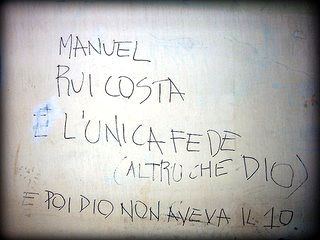 MANUEL
RUI COSTA
È L'UNICA FEDE
(ALTRO CHE DIO)
E POI DIO NON AVEVA IL 10.